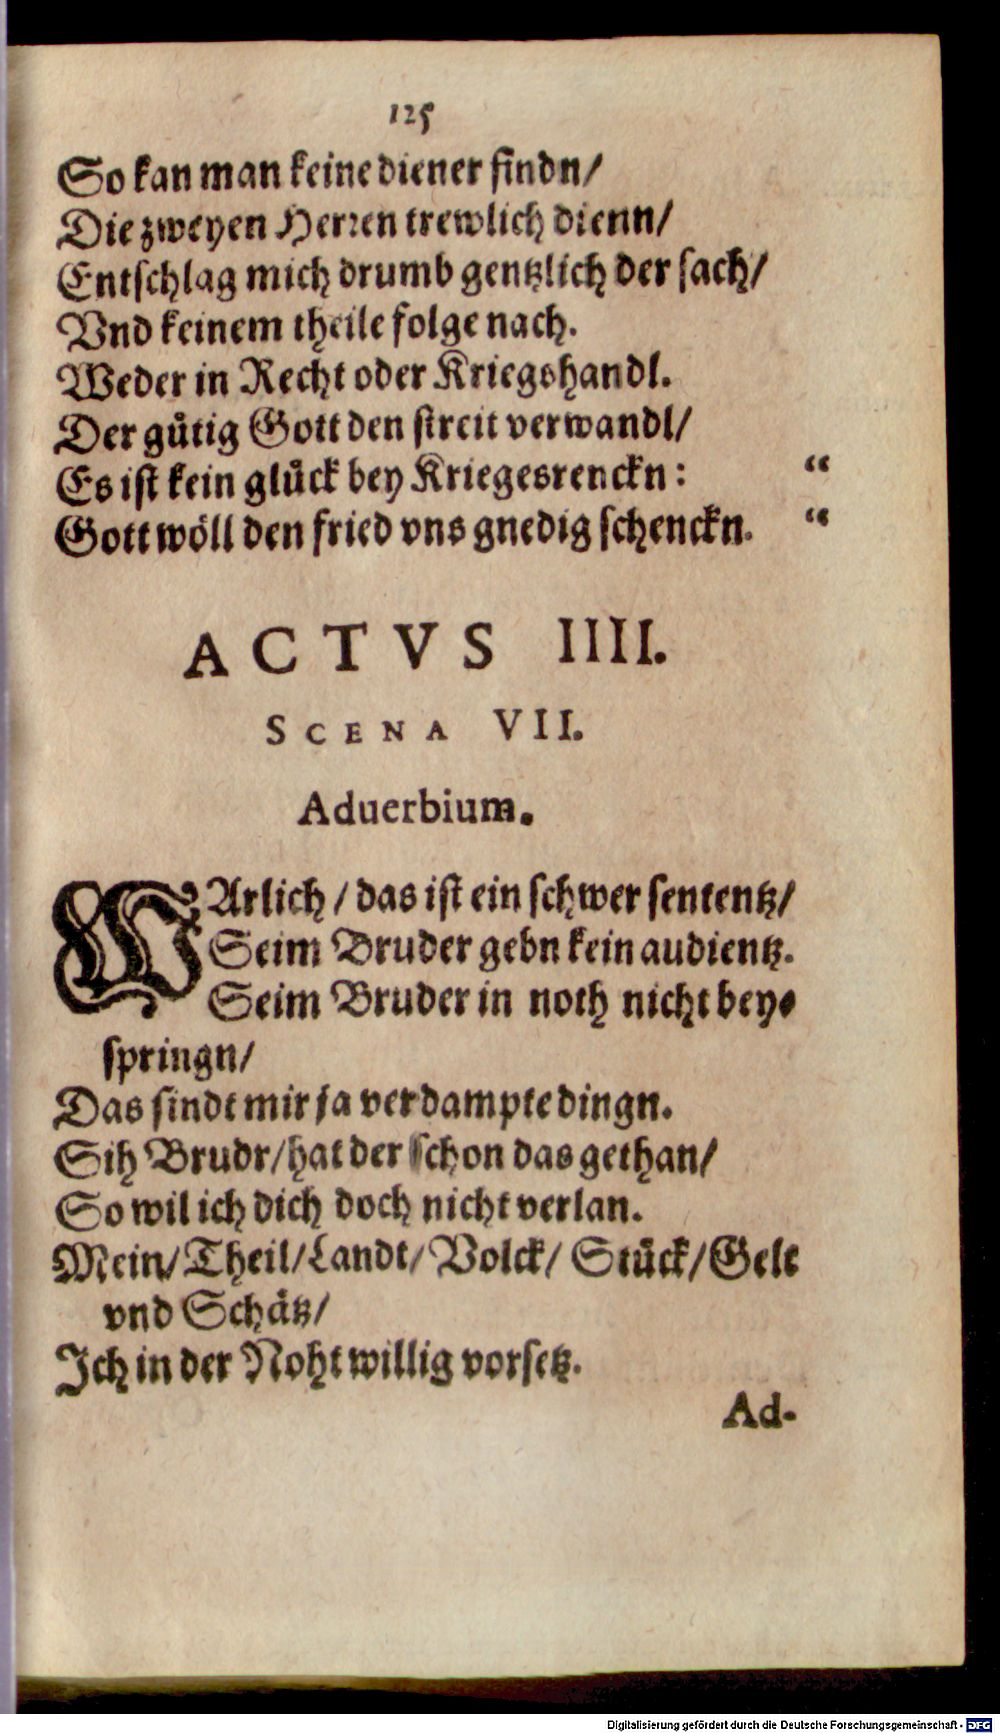 125
So kan man keine diener findn/
Die zweyen Herren trewlich dienn/
Entschlag mich drumb gentzlich der sach/
Vnd keinem theile folge nach.
Weder in Recht oder Kriegshandl.
Der guͤtig Gott den streit verwandl/
Es ist kein gluͤck bey Kriegesrenckn: “
Gott woͤll den fried vns gnedig schenckn. “
ACTVS IIII.
SCENA VII.
Aduerbium.
WArlich / das ist ein schwer sententz/
Seim Bruder gebn kein audientz.
Seim Bruder in noth nicht bey⸗
springn/
Das sindt mir ja verdampte dingn.
Sih Brudr/hat der schon das gethan/
So wil ich dich doch nicht verlan.
Mein/Theil/Landt/Volck/ Stuͤck/Gelt
vnd Schaͤtz/
Ich in der Noht willig vorsetz.
Ad-
Digitalisierung gefördert durch die Deutsche Forschungsgemeinschaft - DFG